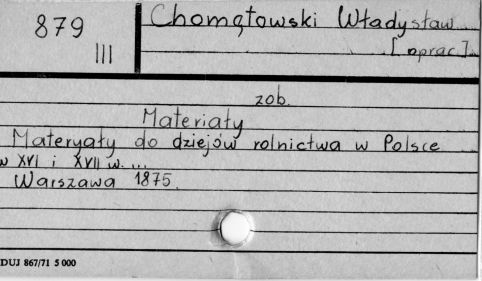 879
III
Chomętowski Władysław
[oprac.]
zob.
Materiały
Materyały do dziejów rolnictwa w Polsce
w XVI i XVII w. ...
Warszawa 1875.
DUJ 867/71 5 000